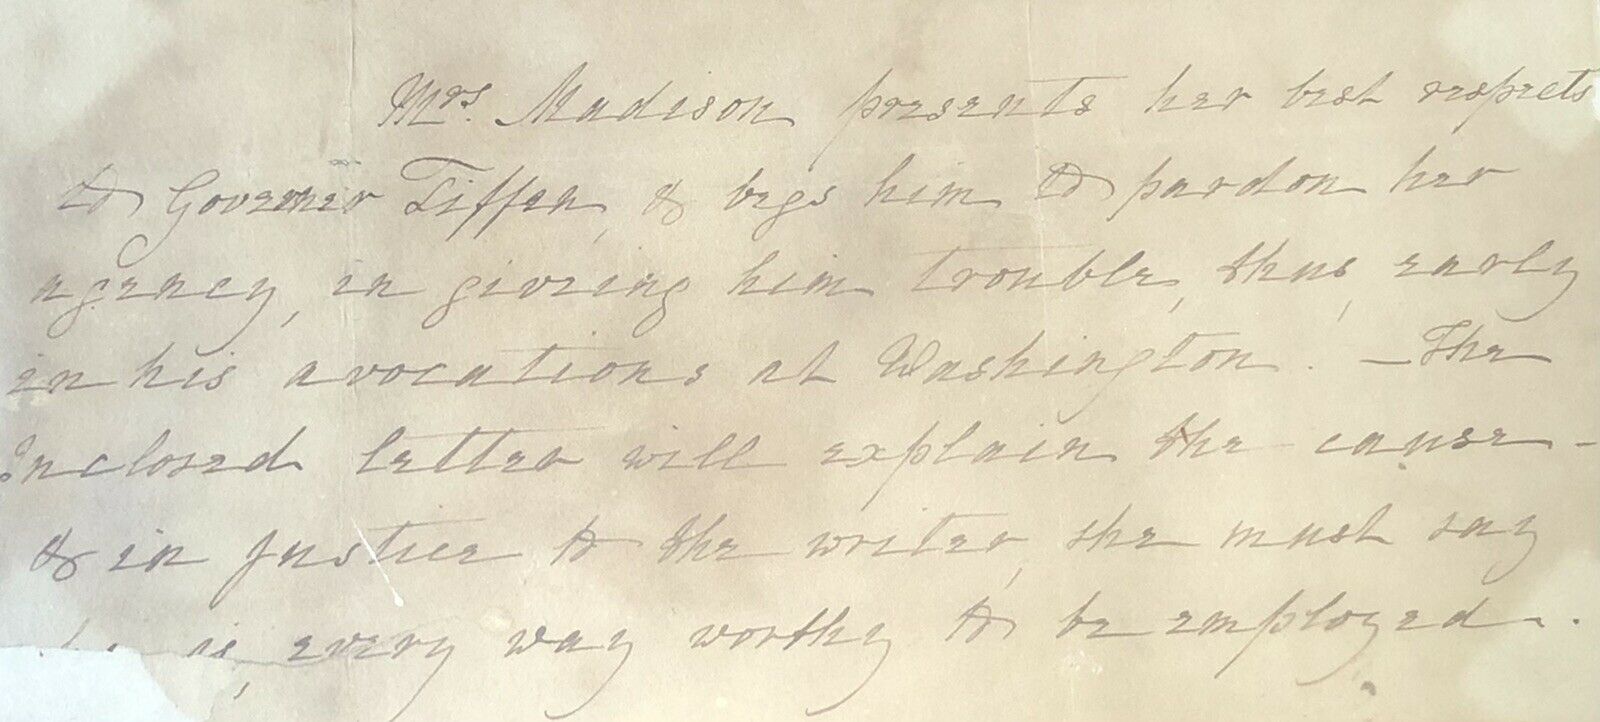 Mrs. Madison presents her best respects
to Governer Tiffen, & begs him to pardon her
agency, in giveing him trouble, thus, early
in his avocations at Washington. — The
inclosed letter will explain the cause -
& in justice to the writer, she must say
is, every way worthy to be employed..